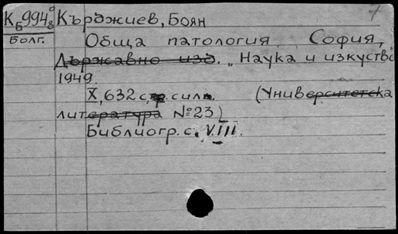 К 994 Кърджиев, Боян
Б
болг.
Обща патология. София,
Държавно изд. „Наука и изкуство
1949.
X, 632 с. с ил. (Университетска
литература №23)
Библиогр. с. VIII.